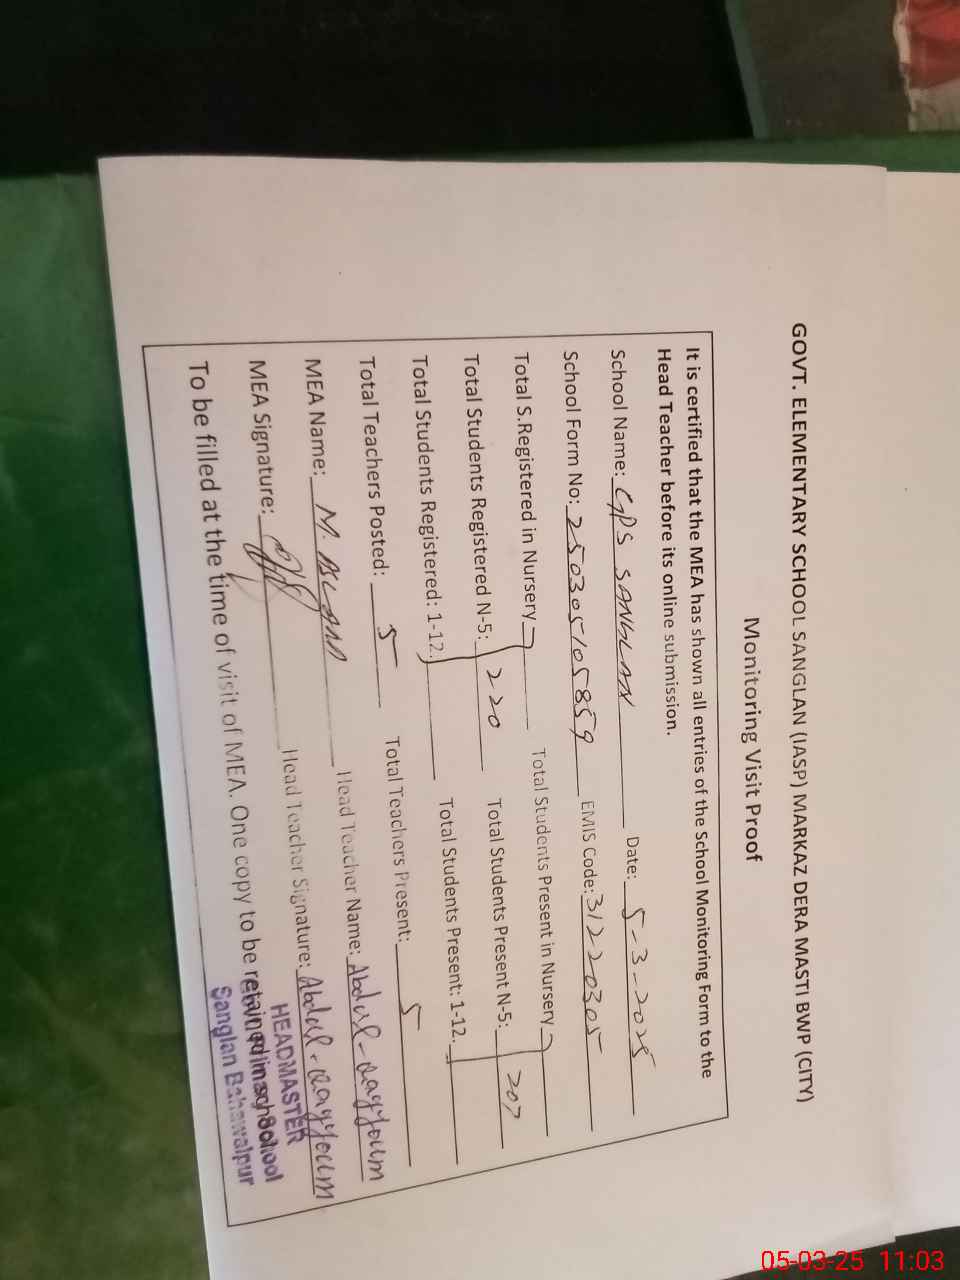 GOVT. ELEMENTARY SCHOOL SANGLAN (IASP) MARKAZ DERA MASTI BWP (CITY)
Monitoring Visit Proof
It is certified that the MEA has shown all entries of the School Monitoring Form to the
Head Teacher before its online submission.
School Name: GPS SANGLAN Date: 5-3-2025
School Form No: 250305105859 EMIS Code: 31220305
Total S.Registered in Nursery Total Students Present in Nursery
Total Students Registered N-5: 220 Total Students Present N-5: 207
Total Students Registered: 1-12. Total Students Present: 1-12.
Total Teachers Posted: 5 Total Teachers Present: 5
MEA Name: M. ASLAM Head Teacher Name: Abdul-Qayyoum
MEA Signature: Head Teacher Signature: Abdul-Qayyoum
To be filled at the time of visit of MEA. One copy to be retained in school
HEADMASTER
Sanglan Bahawalpur
05-03-25 11:03